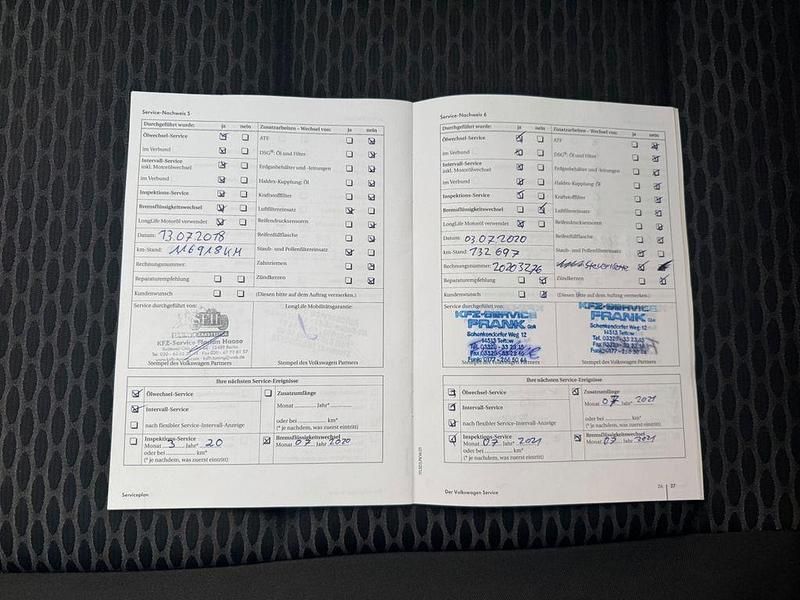 Service-Nachweis 5
Durchgeführt wurde: ja nein
Ölwechsel-Service
im Verbund
Intervall-Service
inkl. Motorölwechsel
im Verbund
Inspektions-Service
Bremsflüssigkeitswechsel
LongLife Motoröl verwendet
Datum: 13.07.2018
km-Stand: 116918 KM
Rechnungsnummer:
Reparaturempfehlung
Kundenwunsch
Zusatzarbeiten – Wechsel von: ja nein
ATF
DSG®: Öl und Filter
Erdgasbehälter und -leitungen
Haldex-Kupplung: Öl
Kraftstofffilter
Luftfiltereinsatz
Reifendrucksensoren
Reifenfüllflasche
Staub- und Pollenfiltereinsatz
Zahnriemen
Zündkerzen
(Diesen bitte auf dem Auftrag vermerken.)
Service durchgeführt von:
KFZ-Service Florian Haase
Stempel des Volkswagen Partners
LongLife Mobilitätsgarantie:
Stempel des Volkswagen Partners
Ihre nächsten Service-Ereignisse
Ölwechsel-Service
Intervall-Service
nach flexibler Service-Intervall-Anzeige
Inspektions-Service
Monat 3 Jahr* 20
oder bei km*
(* je nachdem, was zuerst eintritt)
Zusatzumfänge
Monat Jahr*
oder bei km*
(* je nachdem, was zuerst eintritt)
Bremsflüssigkeitswechsel
Monat 07 Jahr 2020
Serviceplan
Service-Nachweis 6
Durchgeführt wurde: ja nein
Ölwechsel-Service
im Verbund
Intervall-Service
inkl. Motorölwechsel
im Verbund
Inspektions-Service
Bremsflüssigkeitswechsel
LongLife Motoröl verwendet
Datum: 03.07.2020
km-Stand: 132 697
Rechnungsnummer: 20203276
Reparaturempfehlung
Kundenwunsch
Zusatzarbeiten – Wechsel von: ja nein
ATF
DSG®: Öl und Filter
Erdgasbehälter und -leitungen
Haldex-Kupplung: Öl
Kraftstofffilter
Luftfiltereinsatz
Reifendrucksensoren
Reifenfüllflasche
Staub- und Pollenfiltereinsatz
Zündkerzen
(Diesen bitte auf dem Auftrag vermerken.)
Service durchgeführt von:
KFZ-SERVICE
FRANK GbR
Schenkendorfer Weg 12
14513 Teltow
Stempel des Volkswagen Partners
KFZ-SERVICE
FRANK GbR
Schenkendorfer Weg 12
14513 Teltow
Stempel des Volkswagen Partners
Ihre nächsten Service-Ereignisse
Ölwechsel-Service
Intervall-Service
nach flexibler Service-Intervall-Anzeige
Inspektions-Service
Monat 07 Jahr* 2021
oder bei km*
(* je nachdem, was zuerst eintritt)
Zusatzumfänge
Monat 07 Jahr* 2021
oder bei km*
(* je nachdem, was zuerst eintritt)
Bremsflüssigkeitswechsel
Monat 07 Jahr 2021
Der Volkswagen Service
26 27